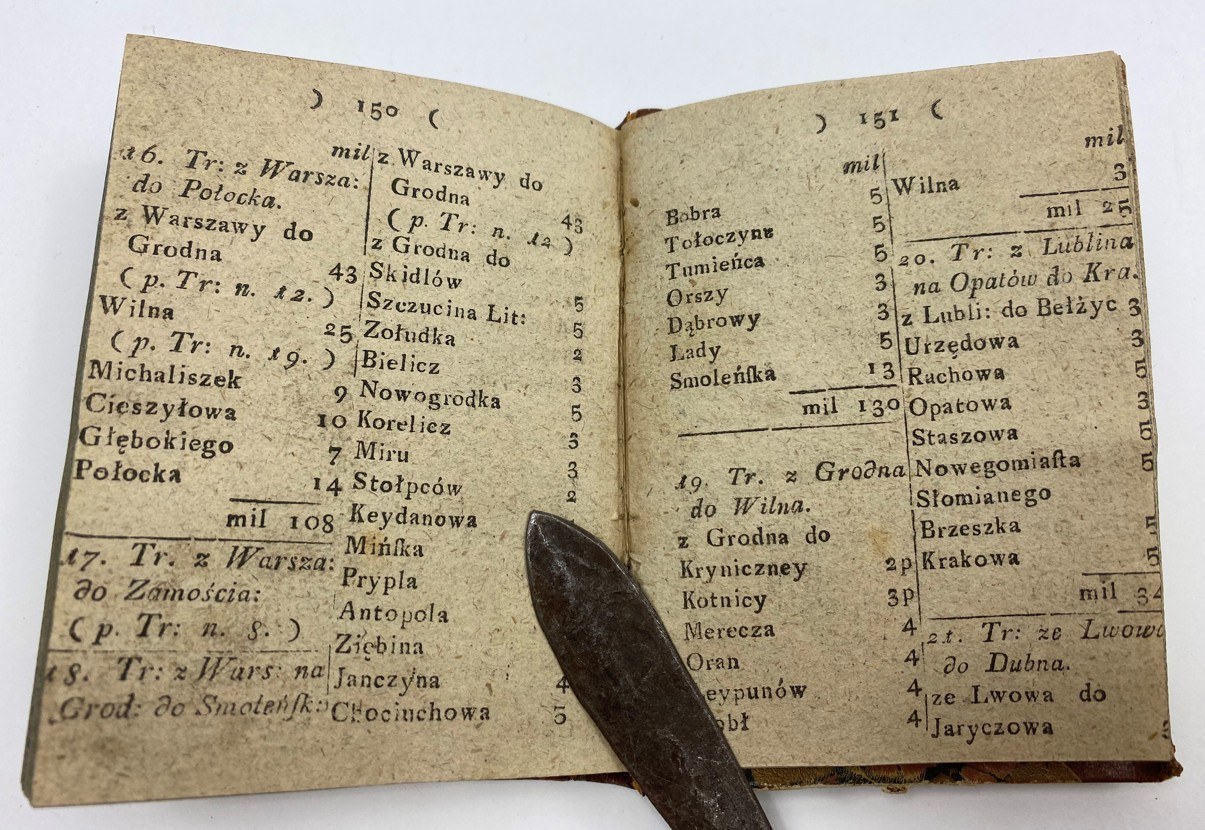 ) 150 (
mil
16. Tr: z Warsza:
do Połocka.
z Warszawy do
Grodna 43
( p. Tr: n. 12. )
Wilna 25
( p. Tr: n. 19. )
Michaliszek 9
Cieszyłowa 10
Głębokiego 7
Połocka 14
mil 108
17. Tr. z Warsza:
do Zamościa:
( p. Tr: n. 8. )
18. Tr: z Wars: na
Grod: do Smoleńſk:
z Warszawy do
Grodna 43
( p. Tr: n. 12 )
z Grodna do
Skidlów 5
Szczucina Lit: 5
Zołudka 2
Bielicz 3
Nowogrodka 5
Korelicz 3
Miru 3
Stołpców 2
Keydanowa
Mińſka
Prypla
Antopola
Ziębina
Janczyna 4
Chociuchowa 5
) 151 (
mil
Bobra 5
Tołoczyna 5
Tumieńca 5
Orszy 3
Dąbrowy 3
Lady 5
Smoleńſka 13
mil 130
19. Tr. z Grodna
do Wilna.
z Grodna do
Kryniczney 2p
Kotnicy 3p
Merecza 4
Oran 4
eypunów 4
obł 4
mil
Wilna 3
mil 25
20. Tr: z Lublina
na Opatów do Kra.
z Lubli: do Bełżyc 3
Urzędowa 3
Rachowa 5
Opatowa 3
Staszowa 5
Nowegomiaſta 5
Słomianego
Brzeszka 5
Krakowa 5
mil 34
21. Tr: ze Lwowa
do Dubna.
ze Lwowa do
Jaryczowa